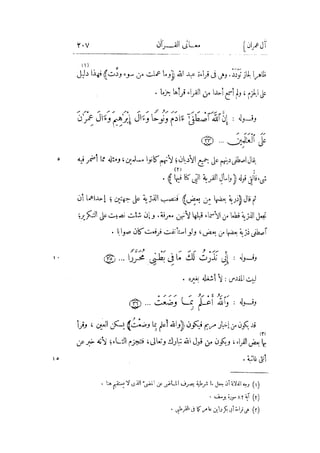 آل عمران ] معانى القـرآن ٢٠٧
ظاهرا لجاز تَوَدّه. وهى فى قراءة عبد الله ((وما عملت من سوء ودّت)) فهذا دليل (١)
على الجزم ، ولم أسمع أحدا من القراء قرأها جزما .
وقـوله : إِنَّ ٱللَّهَ ٱصْطَفَىٰٓ ءَادَمَ وَنُوحًا وَءَالَ إِبْرَٰهِيمَ وَءَالَ عِمْرَٰنَ
عَلَى ٱلْعَٰلَمِينَ ... ٣٣
يقال اصطفى دينهم على جميع الأديان ؛ لأنهم كانوا مسلمين ، ومثله مما أضمر فيه ٥
شىء فألقى قوله ((واسأل القرية التى كنا فيها)) . (٢)
ثم قال ((ذرية بعضها من بعض)) فنصب الذرية على جهتين ؛ إحداهما أن
تجعل الذرية قطعا من الأسماء قبلها لأنهن معرفة . وإن شئت نصبت على التكرير ؛
اصطفى ذرية بعضها من بعض ، ولو استأنفت فرفعت كان صوابا .
وقـوله : إِنِّى نَذَرْتُ لَكَ مَا فِى بَطْنِى مُحَرَّرًا ... ٣٥ ١٠
لبيت المقدس : لا أشغله بغيره .
وقـوله : وَٱللَّهُ أَعْلَمُ بِمَا وَضَعَتْ ... ٣٦
قد يكون من إخبار مريم فيكون ((والله أعلم بما وضعتُ)) يسكن العين ، وقرأ
بها بعض القراء ، ويكون من قول الله تبارك وتعالى ، فتجزم التاء ؛ لأنه خبر عن (٣)
أنثى غائبة . ١٥
(١) وجه الدلالة أن جعل ما شرطية يصرف الماضى عن المضى الذى لا يستقيم هنا .
(٢) آية ٨٢ سورة يوسف .
(٣) هى قراءة أبى بكر وابن عامر كما فى القرطبى .